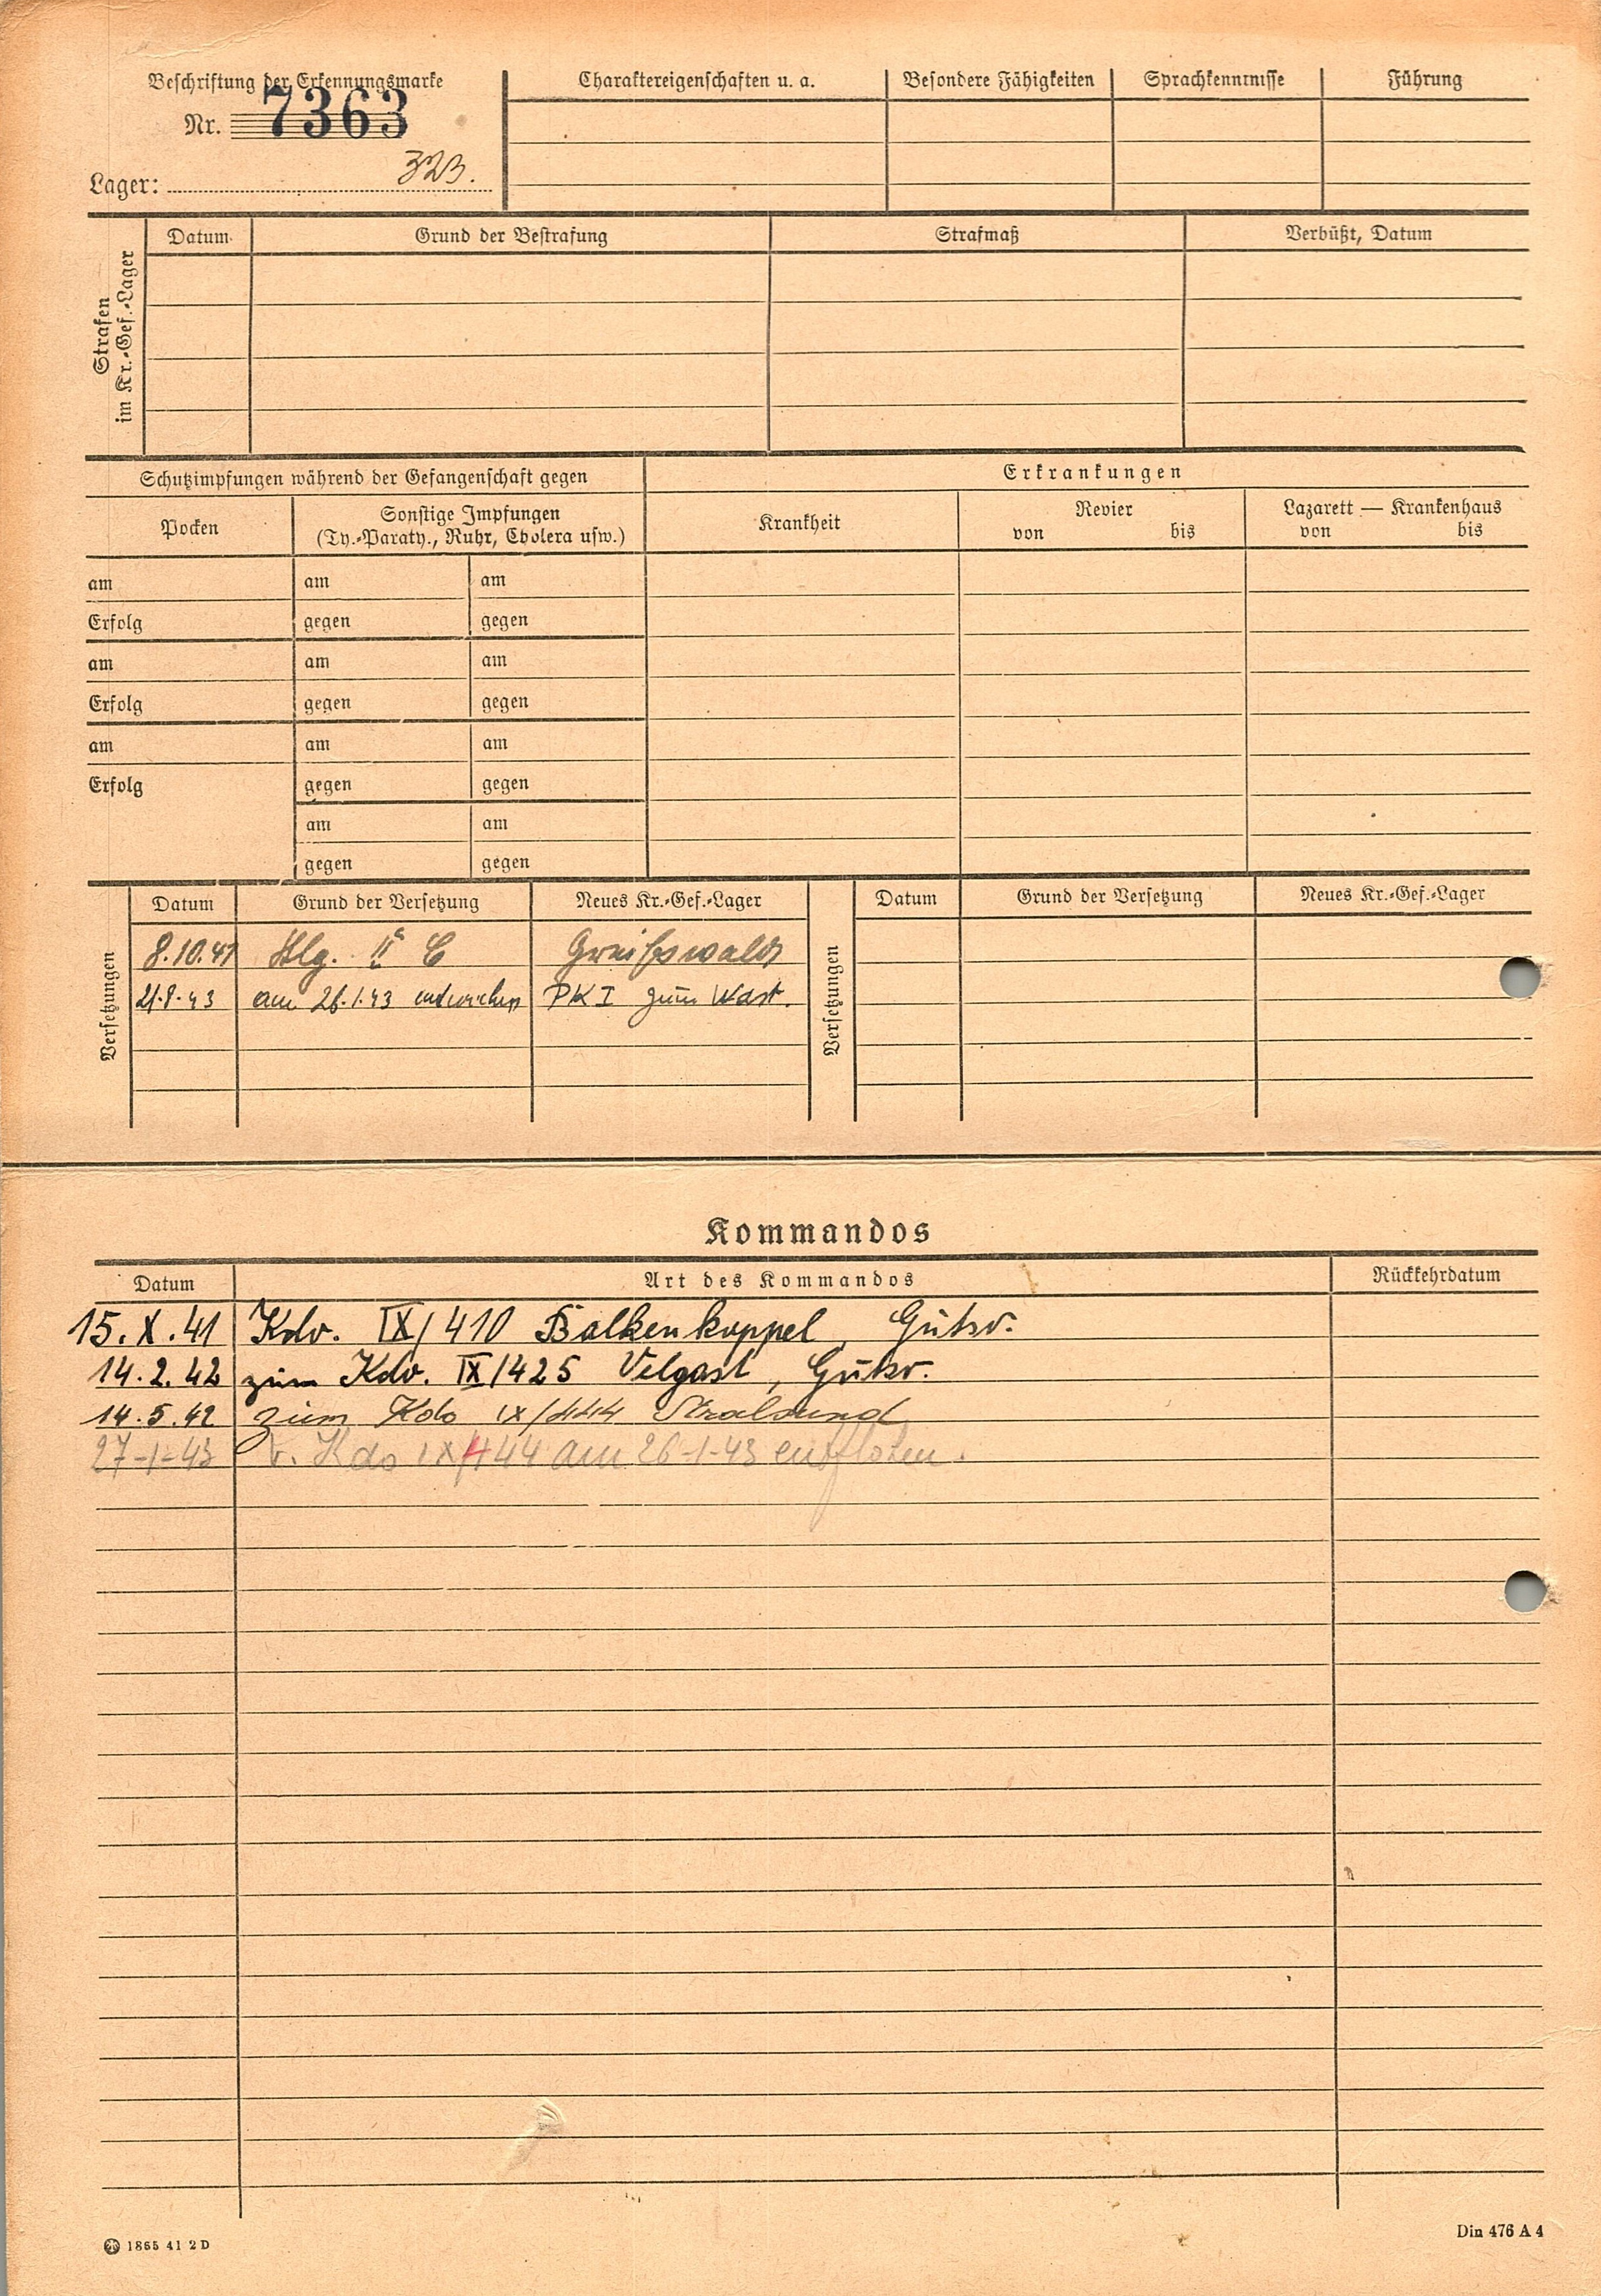 Beschriftung der Erkennungsmarke
Nr. 7363
Lager: 323.
Charaktereigenschaften u. a.
Besondere Fähigkeiten
Sprachkenntnisse
Führung
Strafen
im Kr.-Gef.-Lager
Datum
Grund der Bestrafung
Strafmaß
Verbüßt, Datum
Schutzimpfungen während der Gefangenschaft gegen
Erkrankungen
Pocken
Sonstige Impfungen
(Ty.-Paraty., Ruhr, Cholera usw.)
Krankheit
Revier
von bis
Lazarett — Krankenhaus
von bis
am am am
Erfolg gegen gegen
am am am
Erfolg gegen gegen
am am am
Erfolg gegen gegen
am am
gegen gegen
Versetzungen
Datum Grund der Versetzung Neues Kr.-Gef.-Lager
8.10.41 Stlg. II C Greifswald
21.8.43 am 26.1.43 entwichen PK I zum Wast.
Versetzungen
Datum Grund der Versetzung Neues Kr.-Gef.-Lager
Kommandos
Datum Art des Kommandos Rückkehrdatum
15.X.41 Kdo. IX/410 Balkenkoppel, Gutsv.
14.2.42 zum Kdo. IX/425 Velgast, Gutsv.
14.5.42 zum Kdo IX/444 Stralsund
27-1-43 v. Kdo IX/444 am 26-1-43 entflohen.
1865 41 2 D
Din 476 A 4